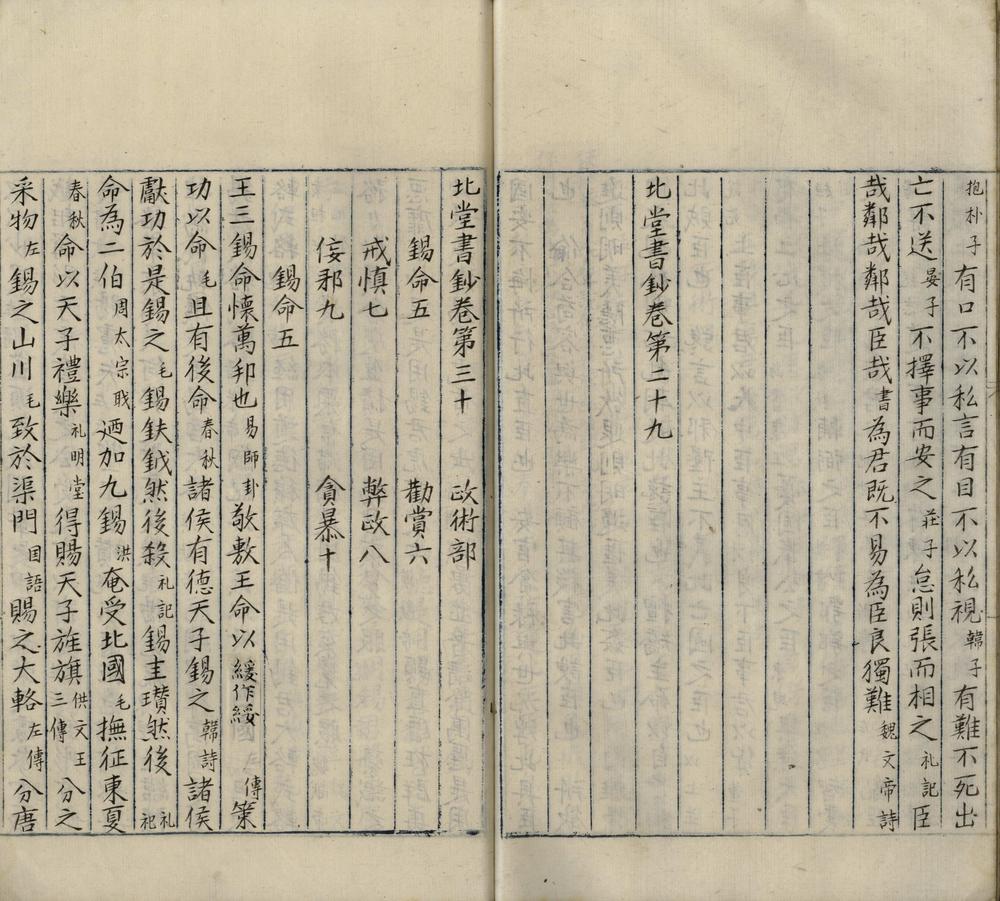 抱朴子有口不以私言有目不以私視韓子有難不死出
亡不送晏子不擇事而安之莊子怠則張而相之礼記臣
哉鄰哉鄰哉臣哉書為君既不易為臣良獨難魏文帝詩
北堂書鈔卷第二十九
北堂書鈔卷第三十 政術部
錫命五 勸賞六
戒慎七 弊政八
佞邪九 貪暴十
錫命五
王三錫命懷萬邦也易師卦敬敷王命以綏作綏國三傳策
功以命毛且有後命春秋諸侯有德天子錫之韓詩諸侯
獻功於是錫之毛錫鈇鉞然後殺礼記錫圭瓚然後礼記
命為二伯周太宗職迺加九錫洪奄受北國毛撫征東夏
春秋命以天子禮樂礼明堂得賜天子旌旗三傳供文王分之
采物左錫之山川毛致於渠門国語賜之大輅左傳分唐